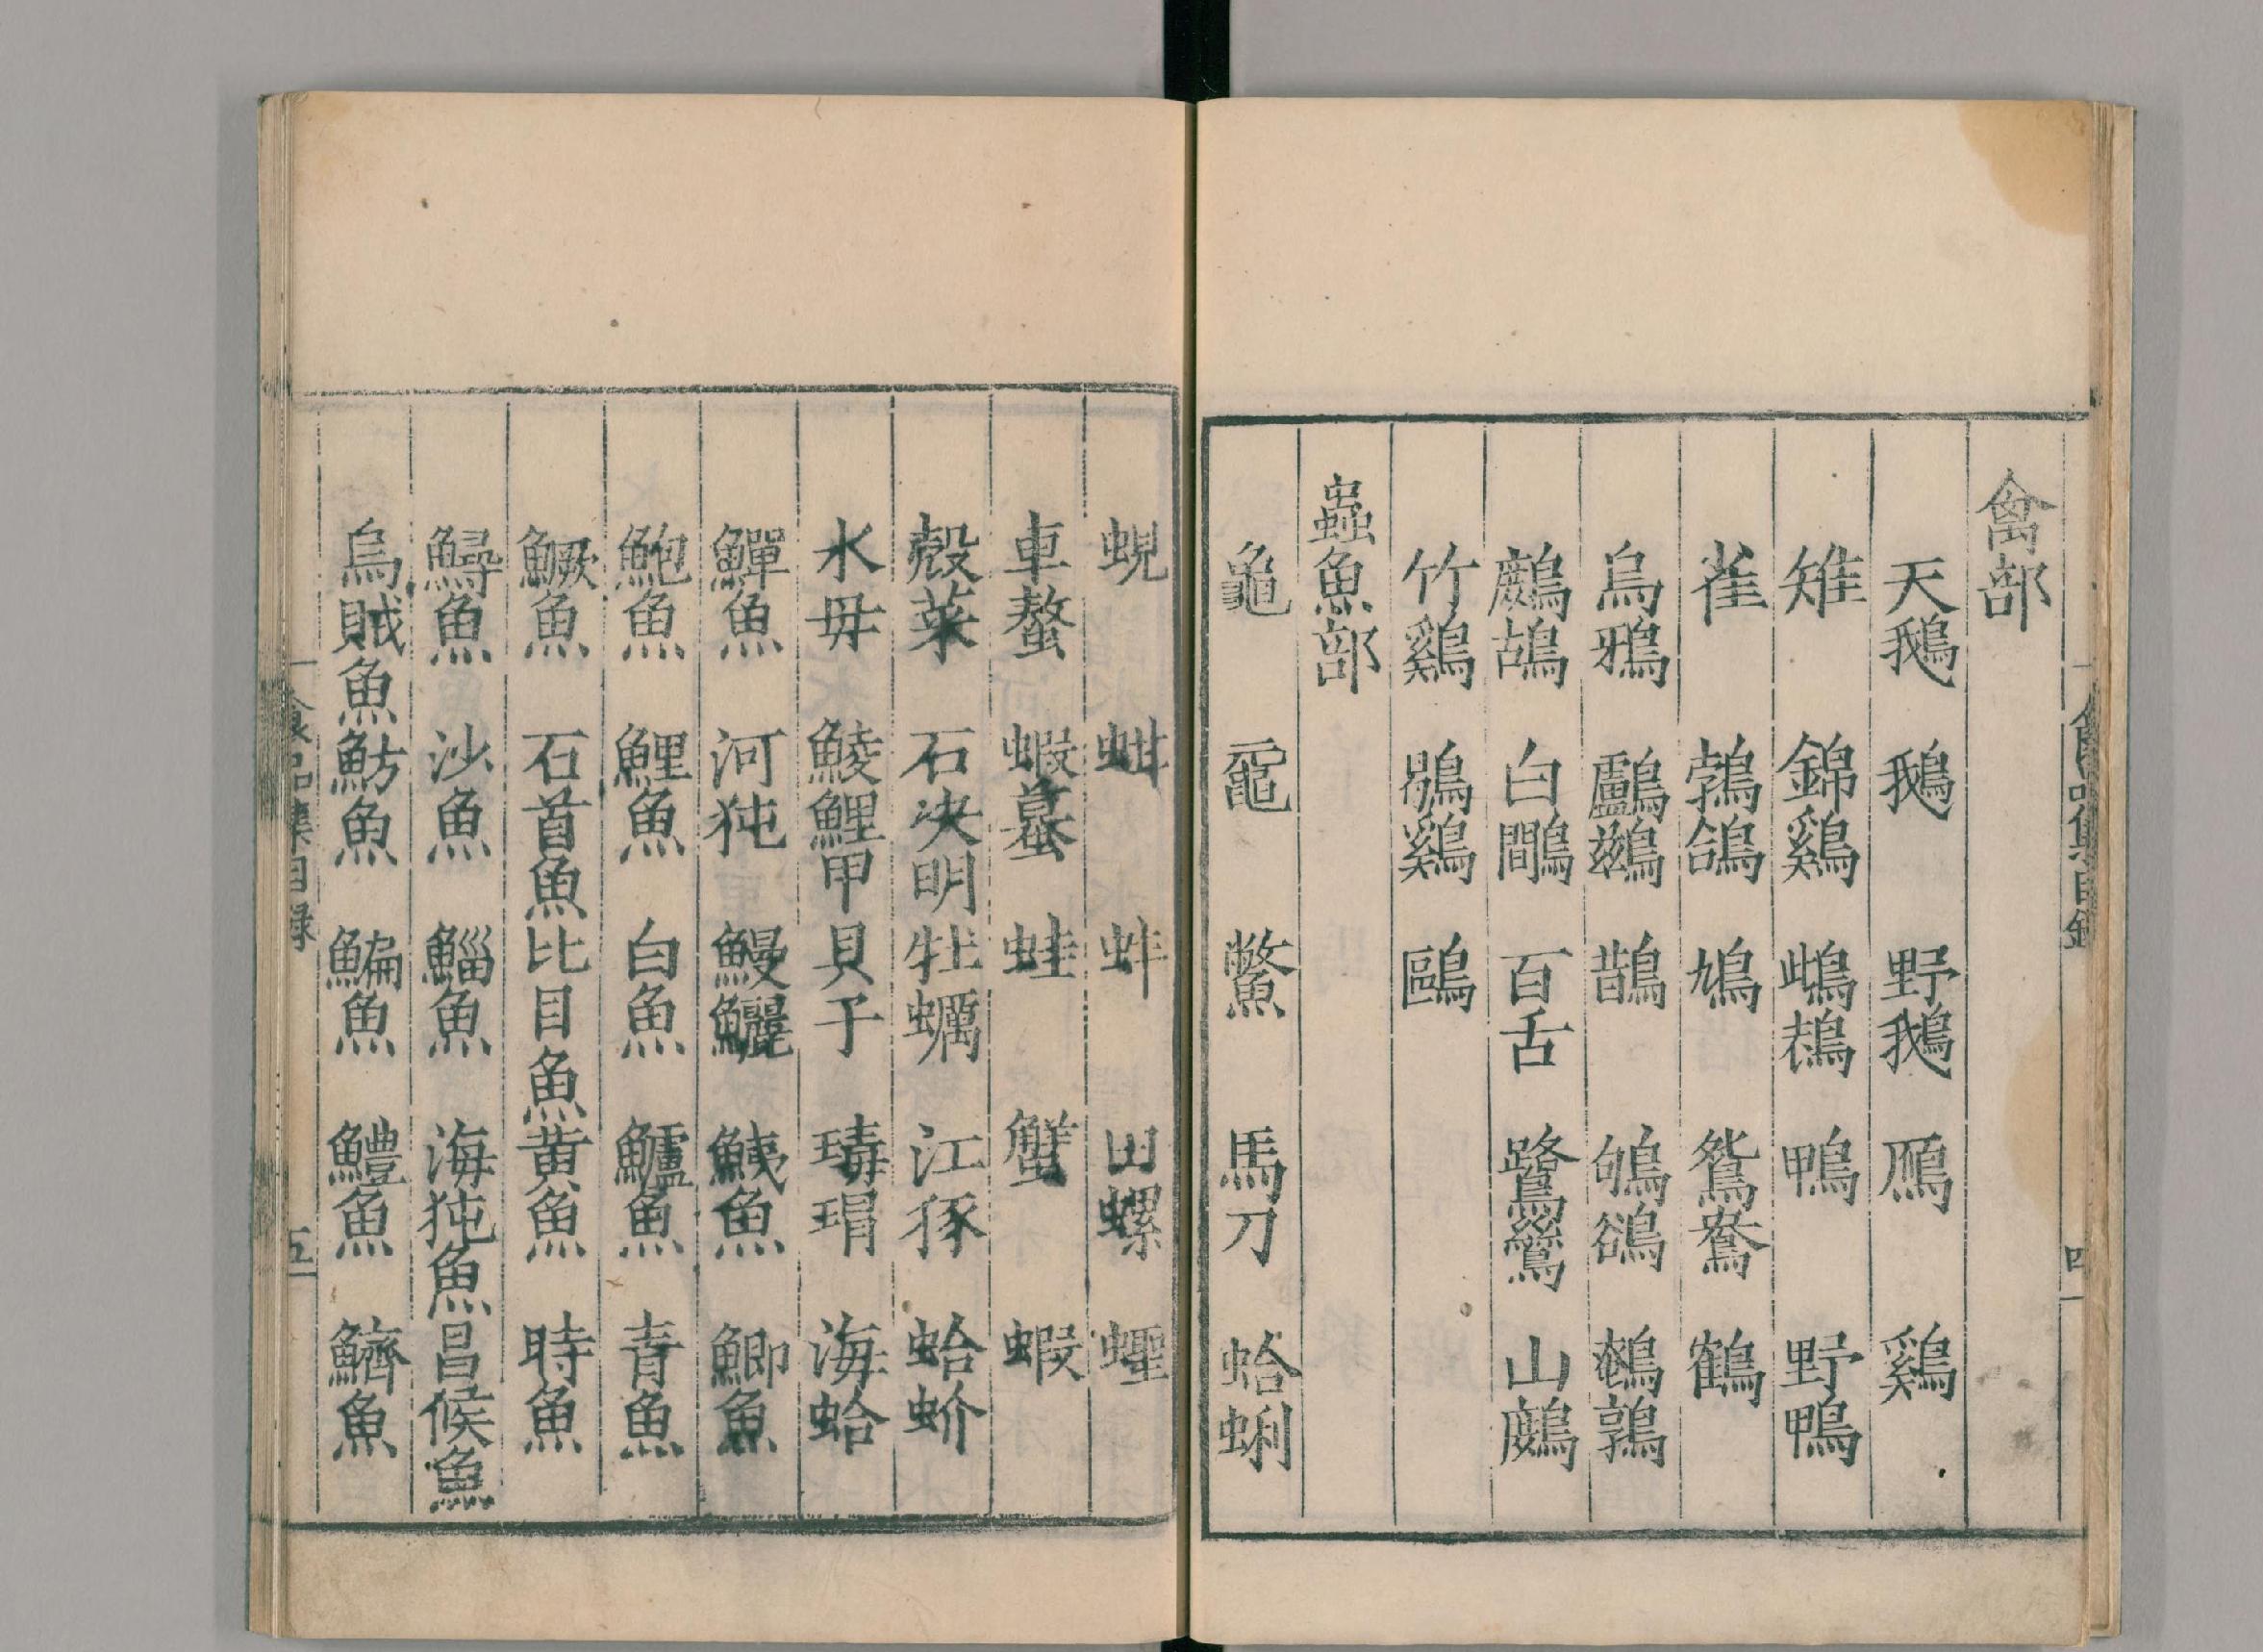 食品集目錄 四
禽部
天鵝 鵝 野鵝 鴈 鷄
雉 錦鷄 鴟鵂 鴨 野鴨
雀 鵓鴿 鳩 鴛鴦 鶴
烏鴉 鸕鷀 鵲 鴝鵒 鵪鶉
鷓鴣 白鷳 百舌 鷺鷥 山鷓
竹鷄 鶡鷄 鷗
蟲魚部
龜 黿 鱉 馬刀 蛤蜊
蜆 蚶 蚌 田螺 蟶
車螯 蝦蟇 蛙 蟹 蝦
殼菜 石决明 牡蠣 江豚 蛤蚧
水母 鯪鯉甲 貝子 瑇瑁 海蛤
鱓魚 河㹠 鰻鱺 鮧魚 鯽魚
鮑魚 鯉魚 白魚 鱸魚 青魚
鱖魚 石首魚 比目魚 黄魚 時魚
鱘魚 沙魚 鯔魚 海㹠魚 昌候魚
烏賊魚 魴魚 鯿魚 鱧魚 鱭魚
食品集目録 五